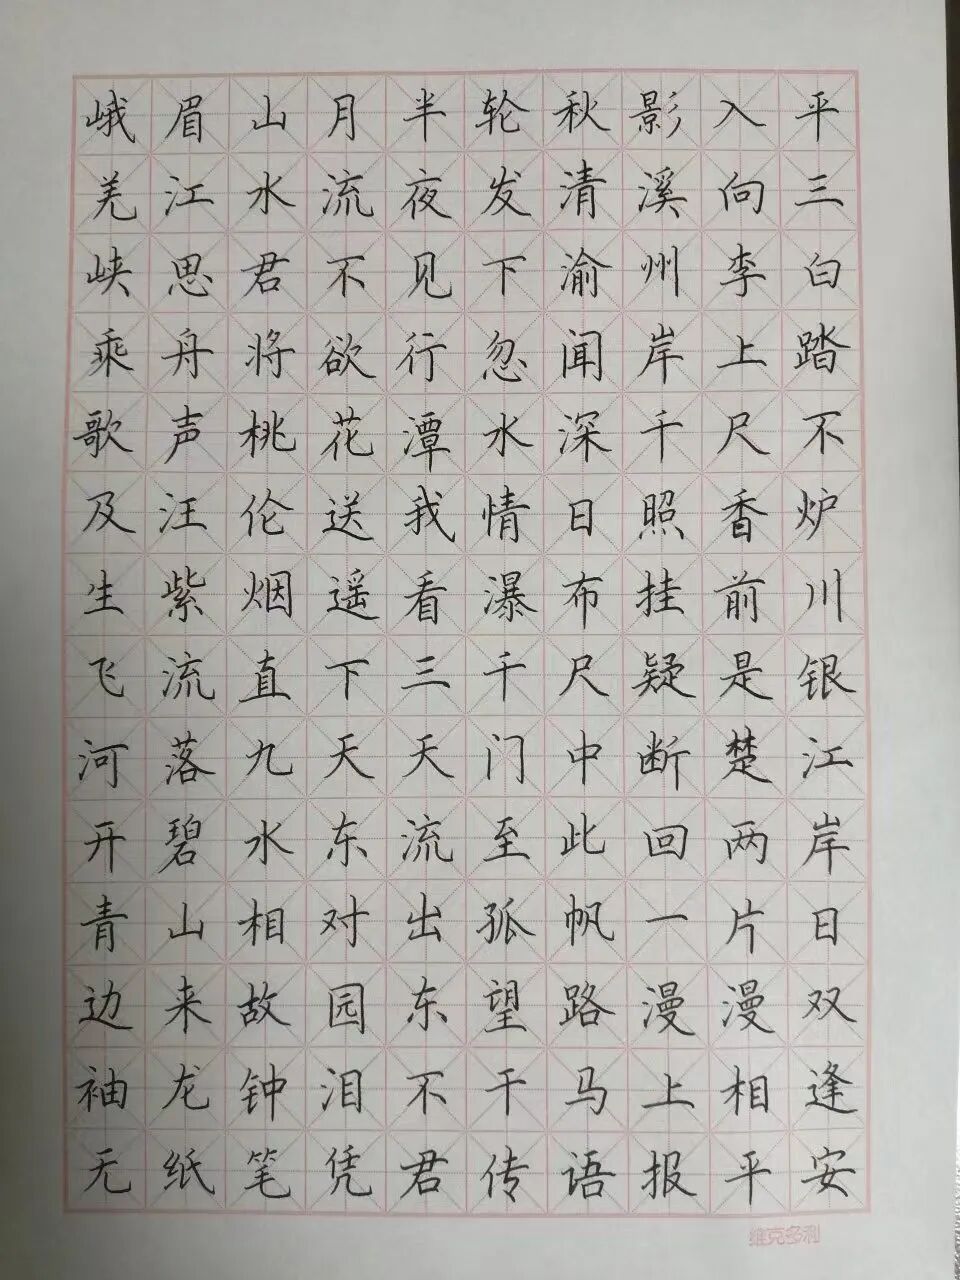 峨眉山月半轮秋影入平
羌江水流夜发清溪向三
峡思君不见下渝州李白
乘舟将欲行忽闻岸上踏
歌声桃花潭水深千尺不
及汪伦送我情日照香炉
生紫烟遥看瀑布挂前川
飞流直下三千尺疑是银
河落九天天门中断楚江
开碧水东流至此回两岸
青山相对出孤帆一片日
边来故园东望路漫漫双
袖龙钟泪不干马上相逢
无纸笔凭君传语报平安
维克多利